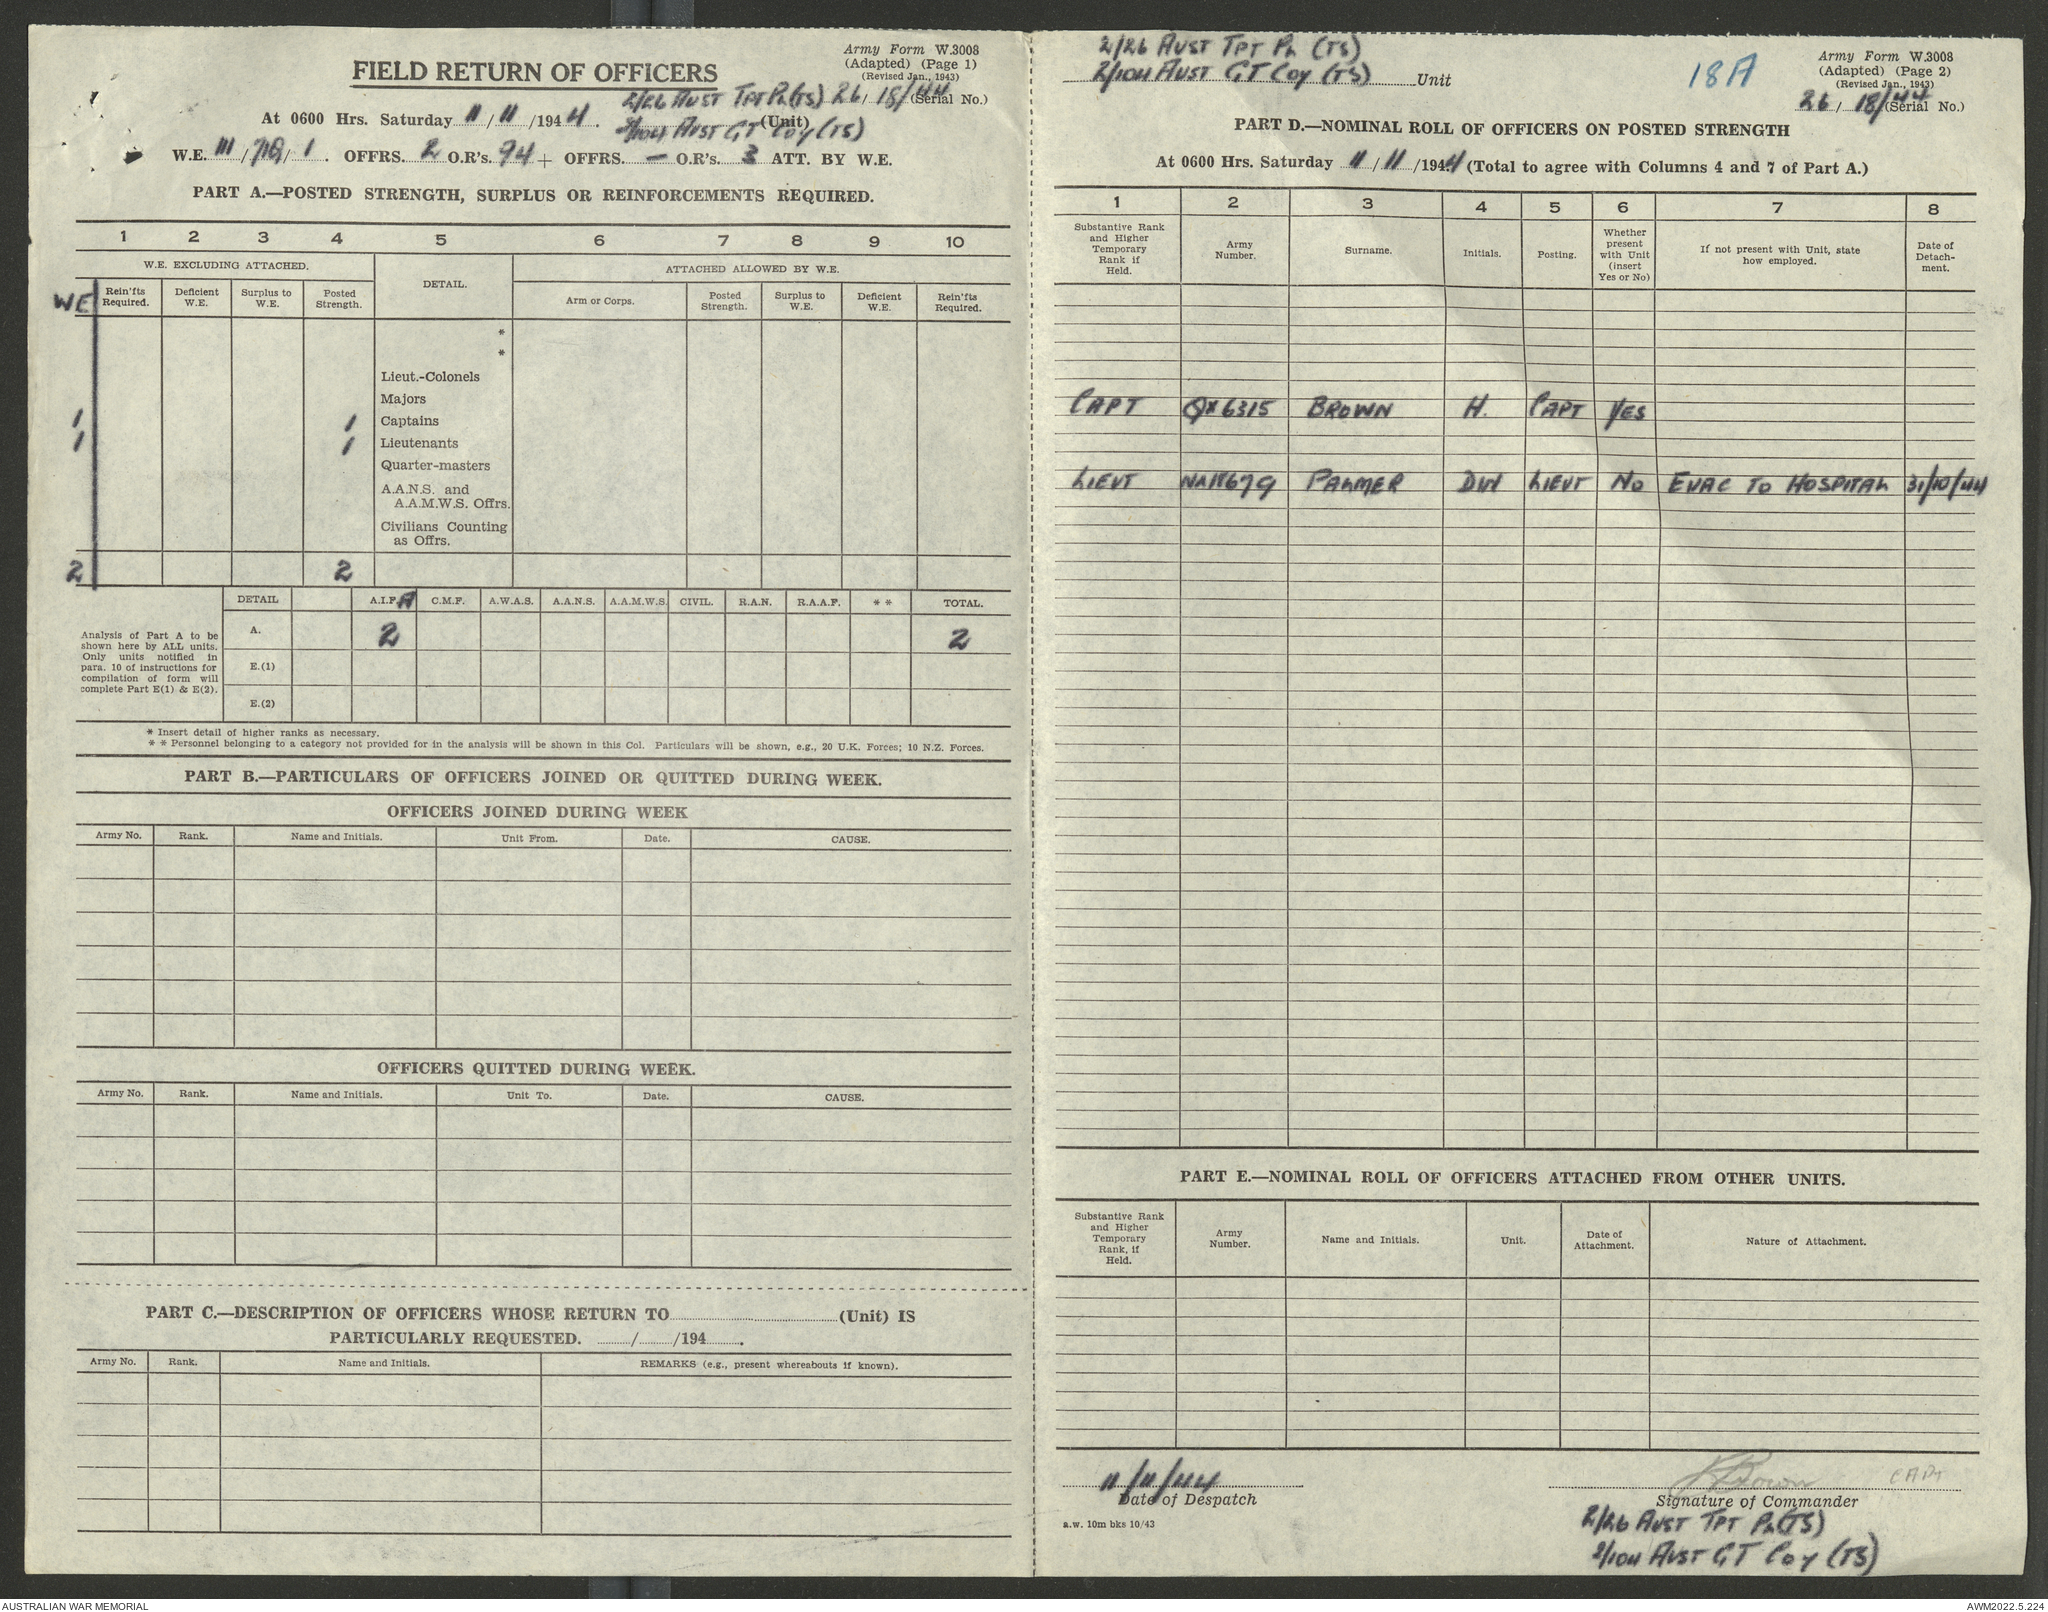 Army Form W.3008
(Adapted) (Page 1)
(Revised Jan., 1943)
FIELD RETURN OF OFFICERS
2/26 AUST TPT PL (TS) 26/18/44 (Serial No.)
At 0600 Hrs. Saturday 11/11/1944.
2/104 AUST GT COY (TS) (Unit)
W.E. III/ /1. OFFRS. 2 O.R's. 94 + OFFRS. — O.R's. 3 ATT. BY W.E.
PART A.—POSTED STRENGTH, SURPLUS OR REINFORCEMENTS REQUIRED.
1 2 3 4 5 6 7 8 9 10
W.E. EXCLUDING ATTACHED. DETAIL. ATTACHED ALLOWED BY W.E.
WE Rein'fts Required. Deficient W.E. Surplus to W.E. Posted Strength. Arm or Corps. Posted Strength. Surplus to W.E. Deficient W.E. Rein'fts Required.
*
*
Lieut.-Colonels
Majors
1 1 Captains
1 1 Lieutenants
Quarter-masters
A.A.N.S. and
A.A.M.W.S. Offrs.
Civilians Counting
as Offrs.
2 2
DETAIL A.I.F. A C.M.F. A.W.A.S. A.A.N.S. A.A.M.W.S. CIVIL. R.A.N. R.A.A.F. * * TOTAL.
Analysis of Part A to be
shown here by ALL units.
Only units notified in
para. 10 of instructions for
compilation of form will
complete Part E(1) & E(2).
A. 2 2
E.(1)
E.(2)
* Insert detail of higher ranks as necessary.
* * Personnel belonging to a category not provided for in the analysis will be shown in this Col. Particulars will be shown, e.g., 20 U.K. Forces; 10 N.Z. Forces.
PART B.—PARTICULARS OF OFFICERS JOINED OR QUITTED DURING WEEK.
OFFICERS JOINED DURING WEEK
Army No. Rank. Name and Initials. Unit From. Date. CAUSE.
OFFICERS QUITTED DURING WEEK.
Army No. Rank. Name and Initials. Unit To. Date. CAUSE.
PART C.—DESCRIPTION OF OFFICERS WHOSE RETURN TO (Unit) IS
PARTICULARLY REQUESTED. / /194 .
Army No. Rank. Name and Initials. REMARKS (e.g., present whereabouts if known).
2/26 AUST TPT PL (TS)
2/104 AUST GT COY (TS) Unit
18A
Army Form W.3008
(Adapted) (Page 2)
(Revised Jan., 1943)
26/18/44 (Serial No.)
PART D.—NOMINAL ROLL OF OFFICERS ON POSTED STRENGTH
At 0600 Hrs. Saturday 11/11/1944 (Total to agree with Columns 4 and 7 of Part A.)
1 2 3 4 5 6 7 8
Substantive Rank and Higher Temporary Rank if Held. Army Number. Surname. Initials. Posting. Whether present with Unit (insert Yes or No) If not present with Unit, state how employed. Date of Detach-ment.
CAPT QX6315 BROWN H. CAPT YES
LIEUT PALMER DW LIEUT NO EVAC TO HOSPITAL 31/10/44
PART E.—NOMINAL ROLL OF OFFICERS ATTACHED FROM OTHER UNITS.
Substantive Rank and Higher Temporary Rank, if Held. Army Number. Name and Initials. Unit. Date of Attachment. Nature of Attachment.
11/11/44
Date of Despatch
a.w. 10m bks 10/43
Brown CAPT
Signature of Commander
2/26 AUST TPT PL (TS)
2/104 AUST GT COY (TS)
AUSTRALIAN WAR MEMORIAL
AWM2022.5.224